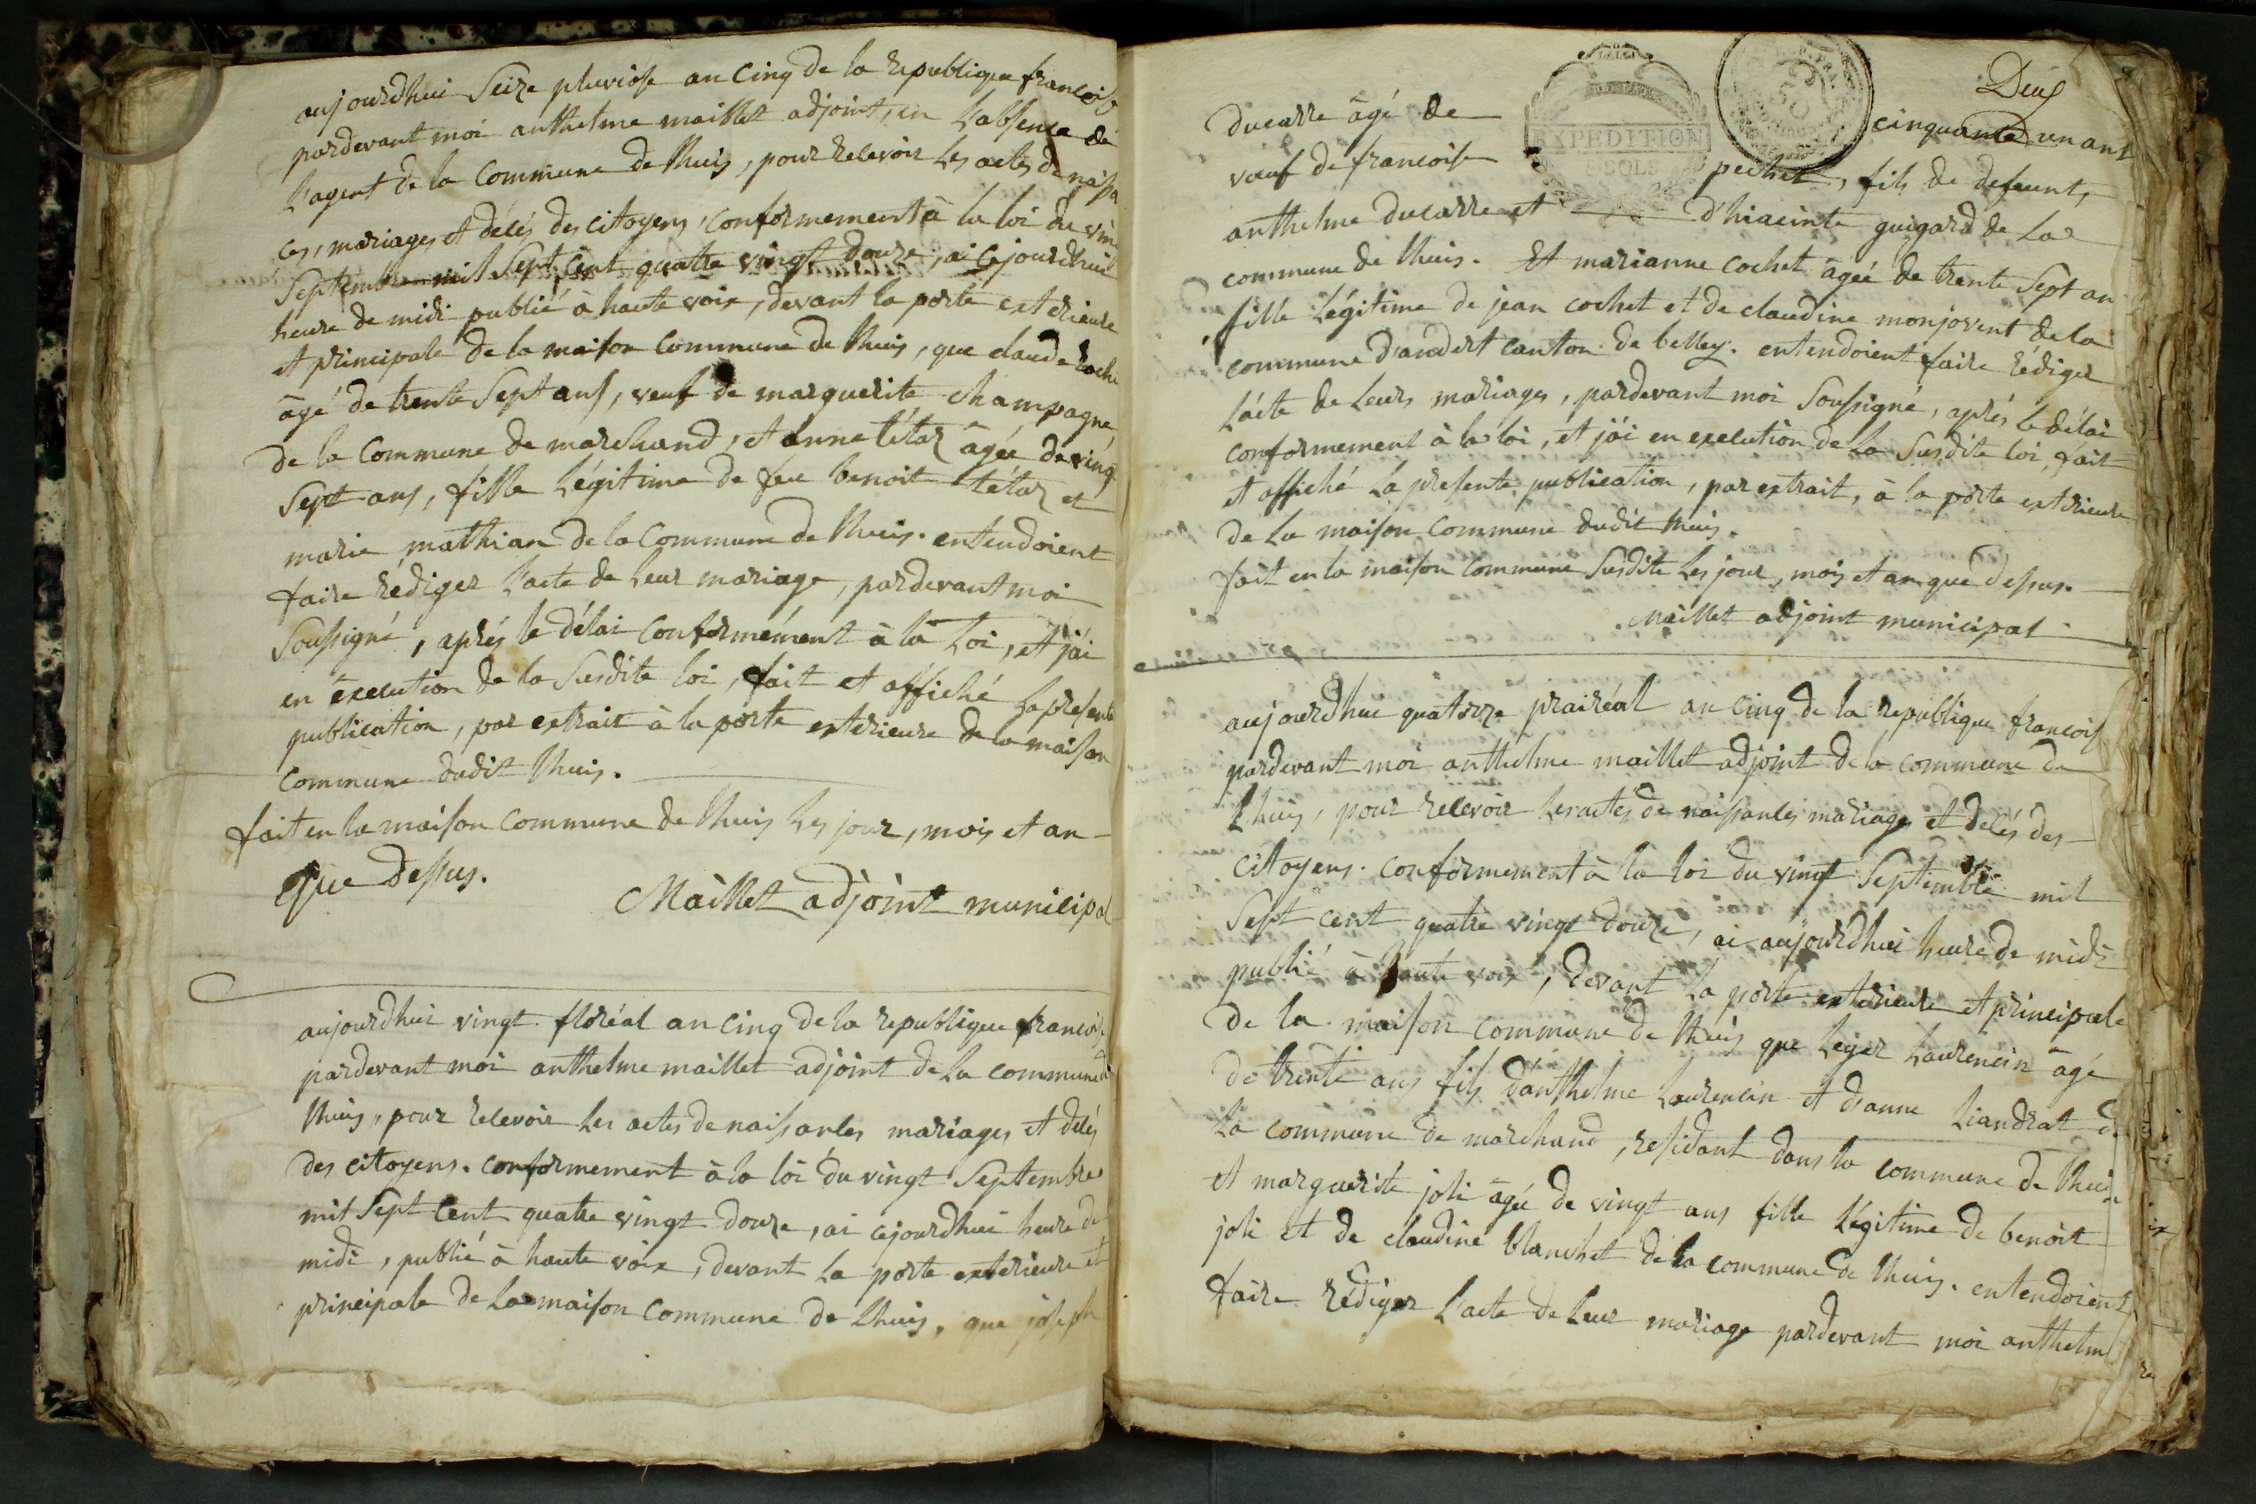 aujourdhui Seize pluviose an Cinq de la republique francoise
pardevant moi anthelme maillet adjoint, en L'absence de
L'agent de la Commune de Lhuis, pour Recevoir Les actes de naissan
ces, mariages et décés des citoyens, conformement à la loi du vin
Septembre mil Sept Cent quatre vingt douze, ai cejourdhui
heure de midi publié à haute voix, devant la porte exterieure
et principale de la maison Commune de Lhuis, que claude
âgé de trente Sept ans, veuf de marguerite Champagne
de la Commune de marchand, et anne tétaz âgée de vingt
Sept ans, fille Légitime de feu benoit tétaz et
marie mathian de la Commune de Lhuis. entendoient
faire Rédiger L'acte de Leur mariage, pardevant moi
Soussigné, aprés le délai Conformément à la Loi, et j'ai
en éxecution de la Susdite loi, fait et affiché La presente
publication, par extrait à la porte exterieure de la maison
Commune dudit Lhuis.
fait en la maison Commune de Lhuis Les jour, mois et an
que Dessus.
Maillet adjoint municipal
aujourdhui vingt floréal an Cinq de la republique francois
pardevant moi anthelme maillet adjoint de La commune de
Lhuis, pour Recevoir Les actes de naissances mariages et décés
des citoyens. conformement à la loi du vingt Septembre
mil Sept Cent quatre vingt douze, ai cejourdhui heure de
midi, publié à haute voix, devant La porte exterieure et
principale de La maison Commune de Lhuis, que joseph
Deux
EXPEDITION
SOLS
ducarre âgé de cinquante un ans
veuf de francoise pechet, fils de defeunts
anthelme ducarre et d'hiacinte guigard de La
commune de Lhuis. Et marianne cochet âgée de trente Sept an
fille Légitime de jean cochet et de claudine monjovent de la
commune d'andert canton de belley. entendoient faire rédiger
L'acte de Leurs mariages, pardevant moi Soussigné, aprés Le délai
conformement à la loi, et j'ai en execution de La Susdite loi, fait
et affiché La presente publication, par extrait, à la porte exterieure
de La maison Commune dudit Lhuis.
fait en la maison Commune Susdite Les jour, mois et an que Dessus.
Maillet adjoint municipal
aujourdhui quatorze prairéal an Cinq de la republique francois
pardevant moi anthelme maillet adjoint de la Commune de
Lhuis, pour recevoir Les actes de naissances mariages et décés des
citoyens. conformement à la loi du vingt Septembre mil
Sept cent quatre vingt douze, ai aujourdhui heure de midi
publié à haute voix, devant La porte exterieure et principale
de la maison commune de Lhuis que Leger Laurencin âgé
de trente ans fils d'anthelme Laurencin et d'anne Liandrat de
La commune de marchand, residant dans la commune de Lhuis
et marguerite joli âgée de vingt ans fille Légitime de benoit
joli et de claudine blanchet de la commune de Lhuis. entendoient
faire Rédiger L'acte de Leur mariage pardevant moi anthelm